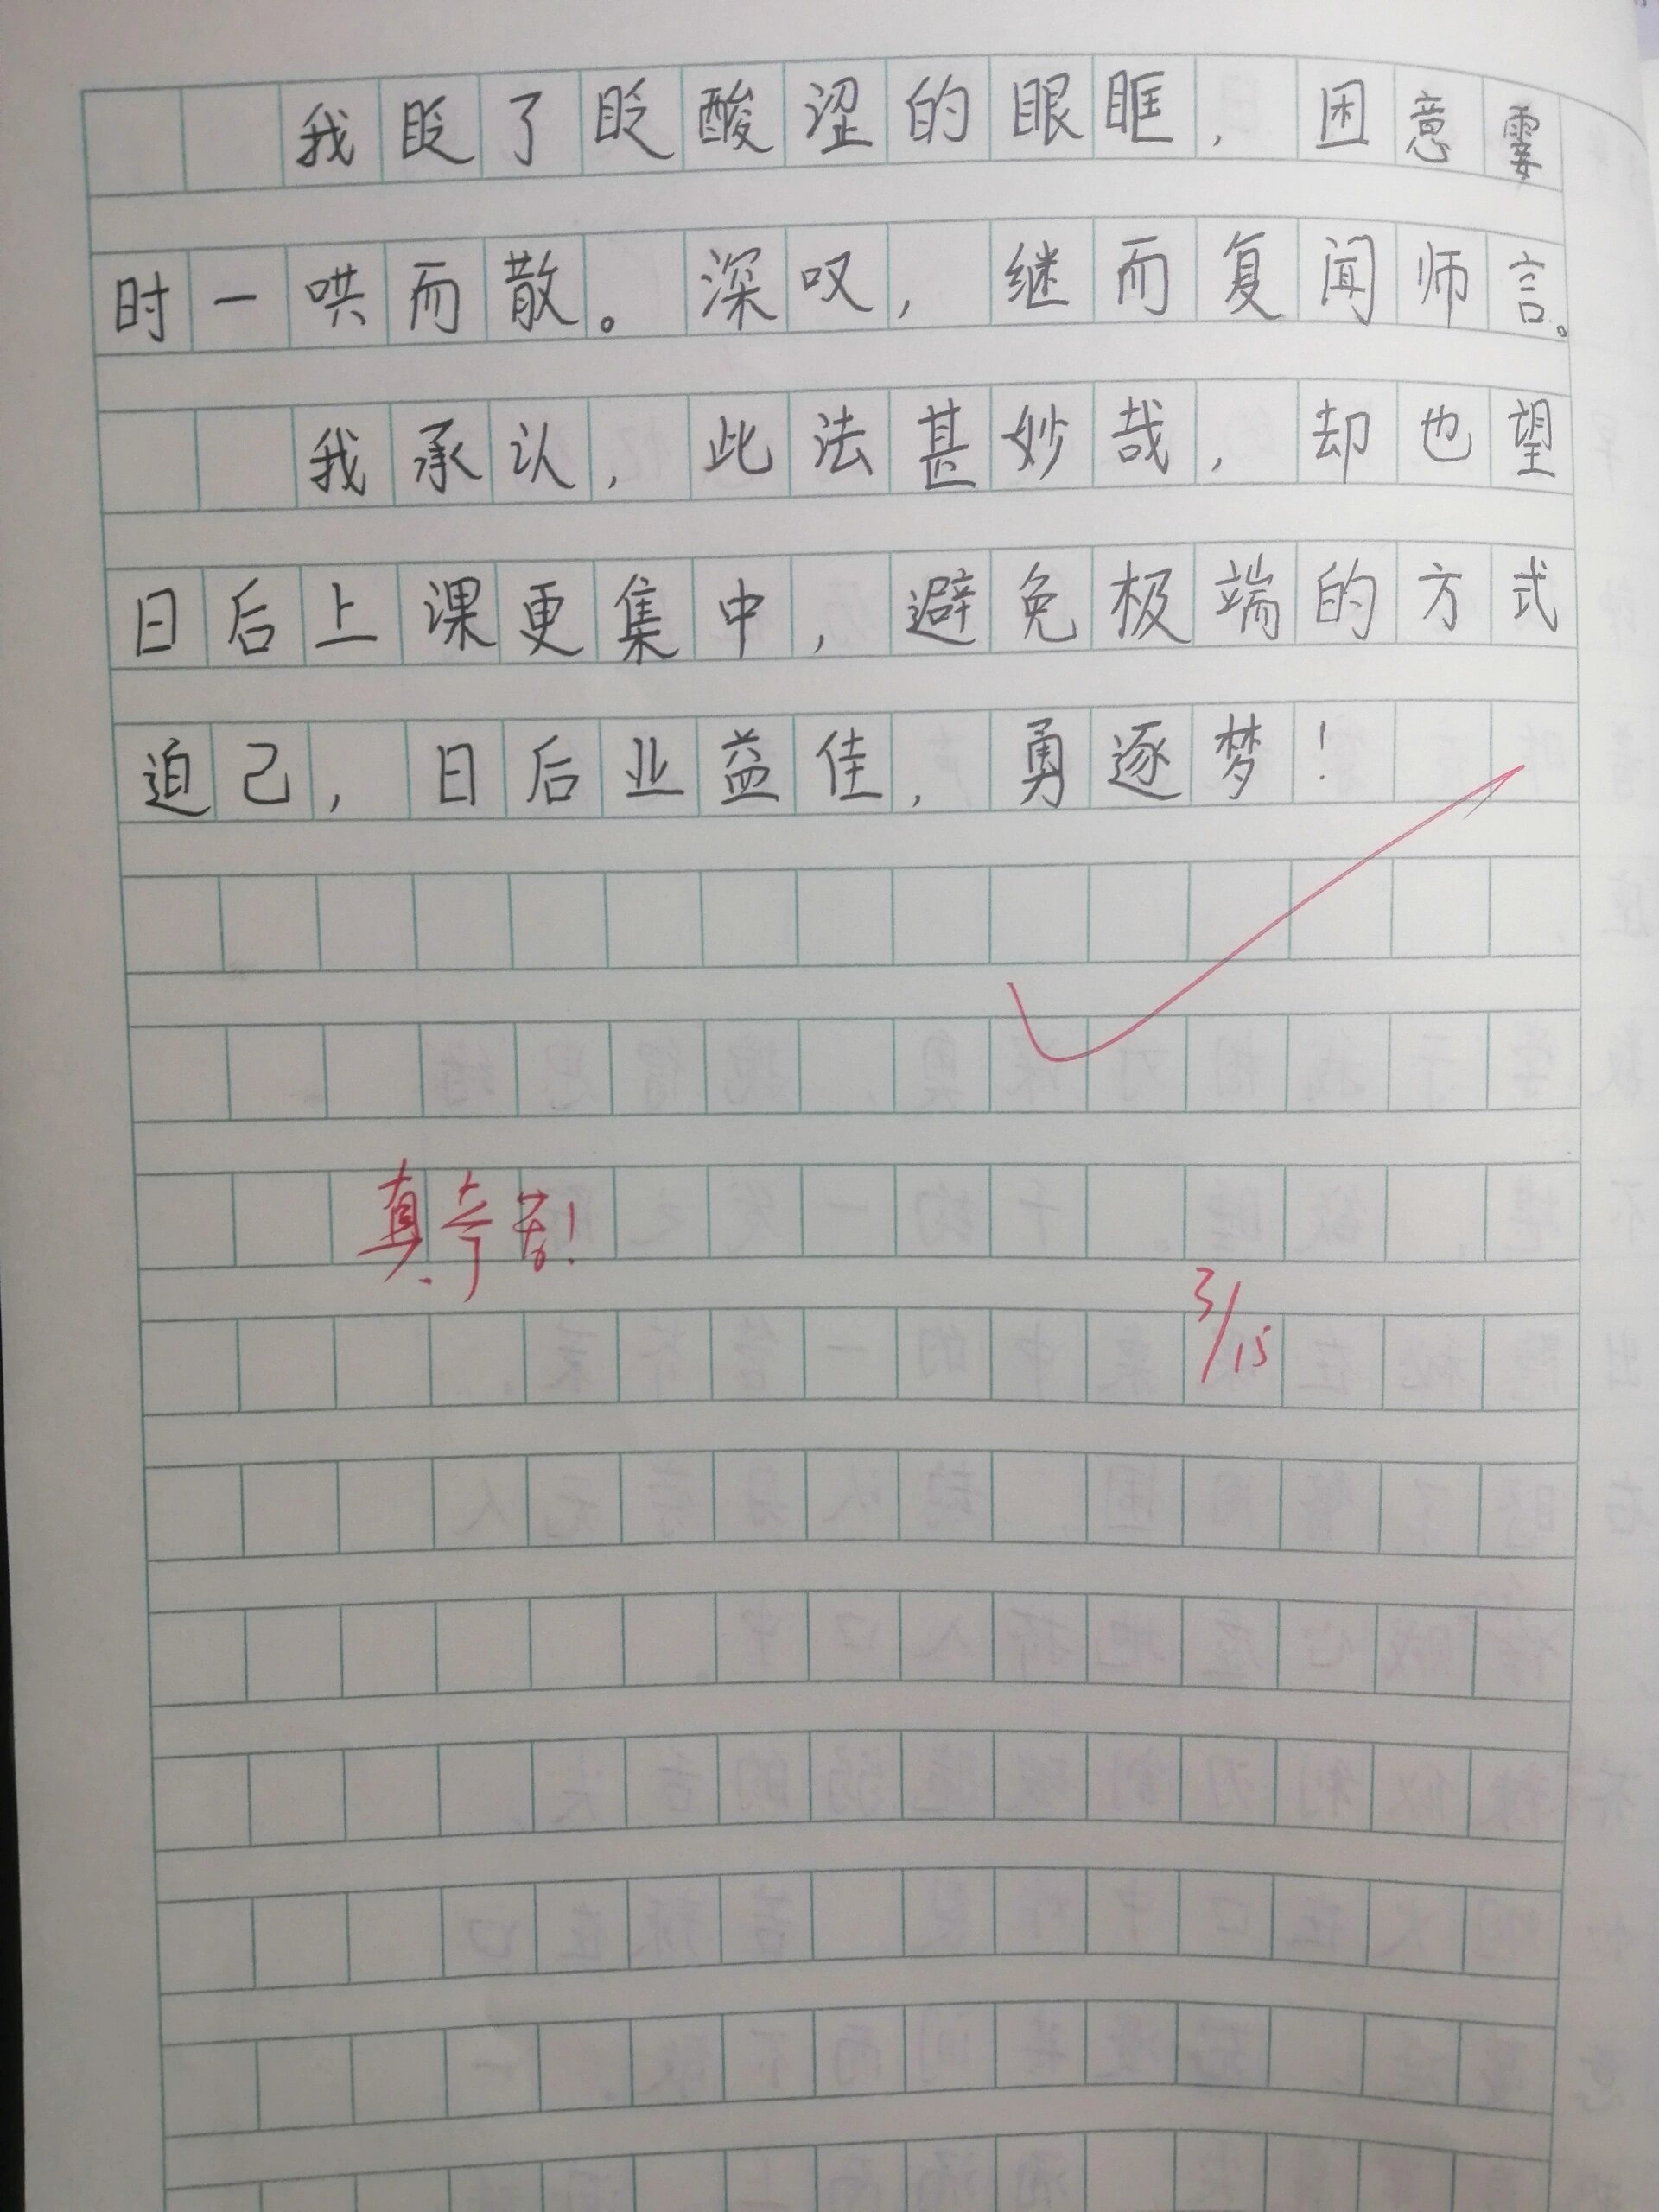 我眨了眨酸涩的眼眶，困意霎
时一哄而散。深叹，继而复闻师言。
我承认，此法甚妙哉，却也望
日后上课更集中，避免极端的方式
迫己，日后业益佳，勇逐梦！
真辛苦！
3/15